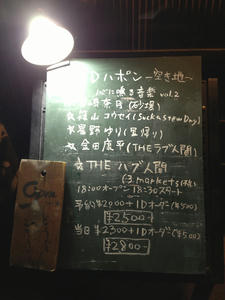 ハポン〜空き地〜
心に鳴る音楽 vol.2
奈月(砂場)
山コウセイ(Suck a Stew Dry)
☆星野ゆり(里帰り)
☆金田康平(THEラブ人間)
☆THE ハブ人間
(3.markets(株))
18:00オープン 18:30スタート
予約¥2000+1Dオーダー(¥500)
¥2500
当日¥2300+1Dオーダー(¥500)
¥2800
Open